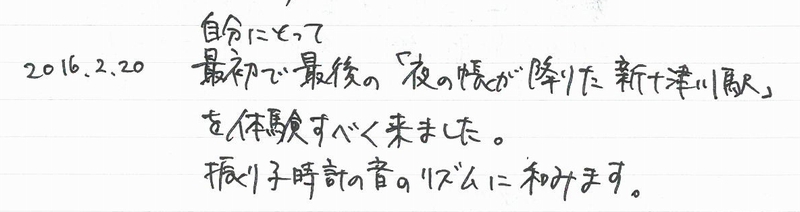 自分にとって
2016.2.20 最初で最後の「夜の帳が降りた 新十津川駅」
を体験すべく来ました。
振り子時計の音のリズムに和みます。